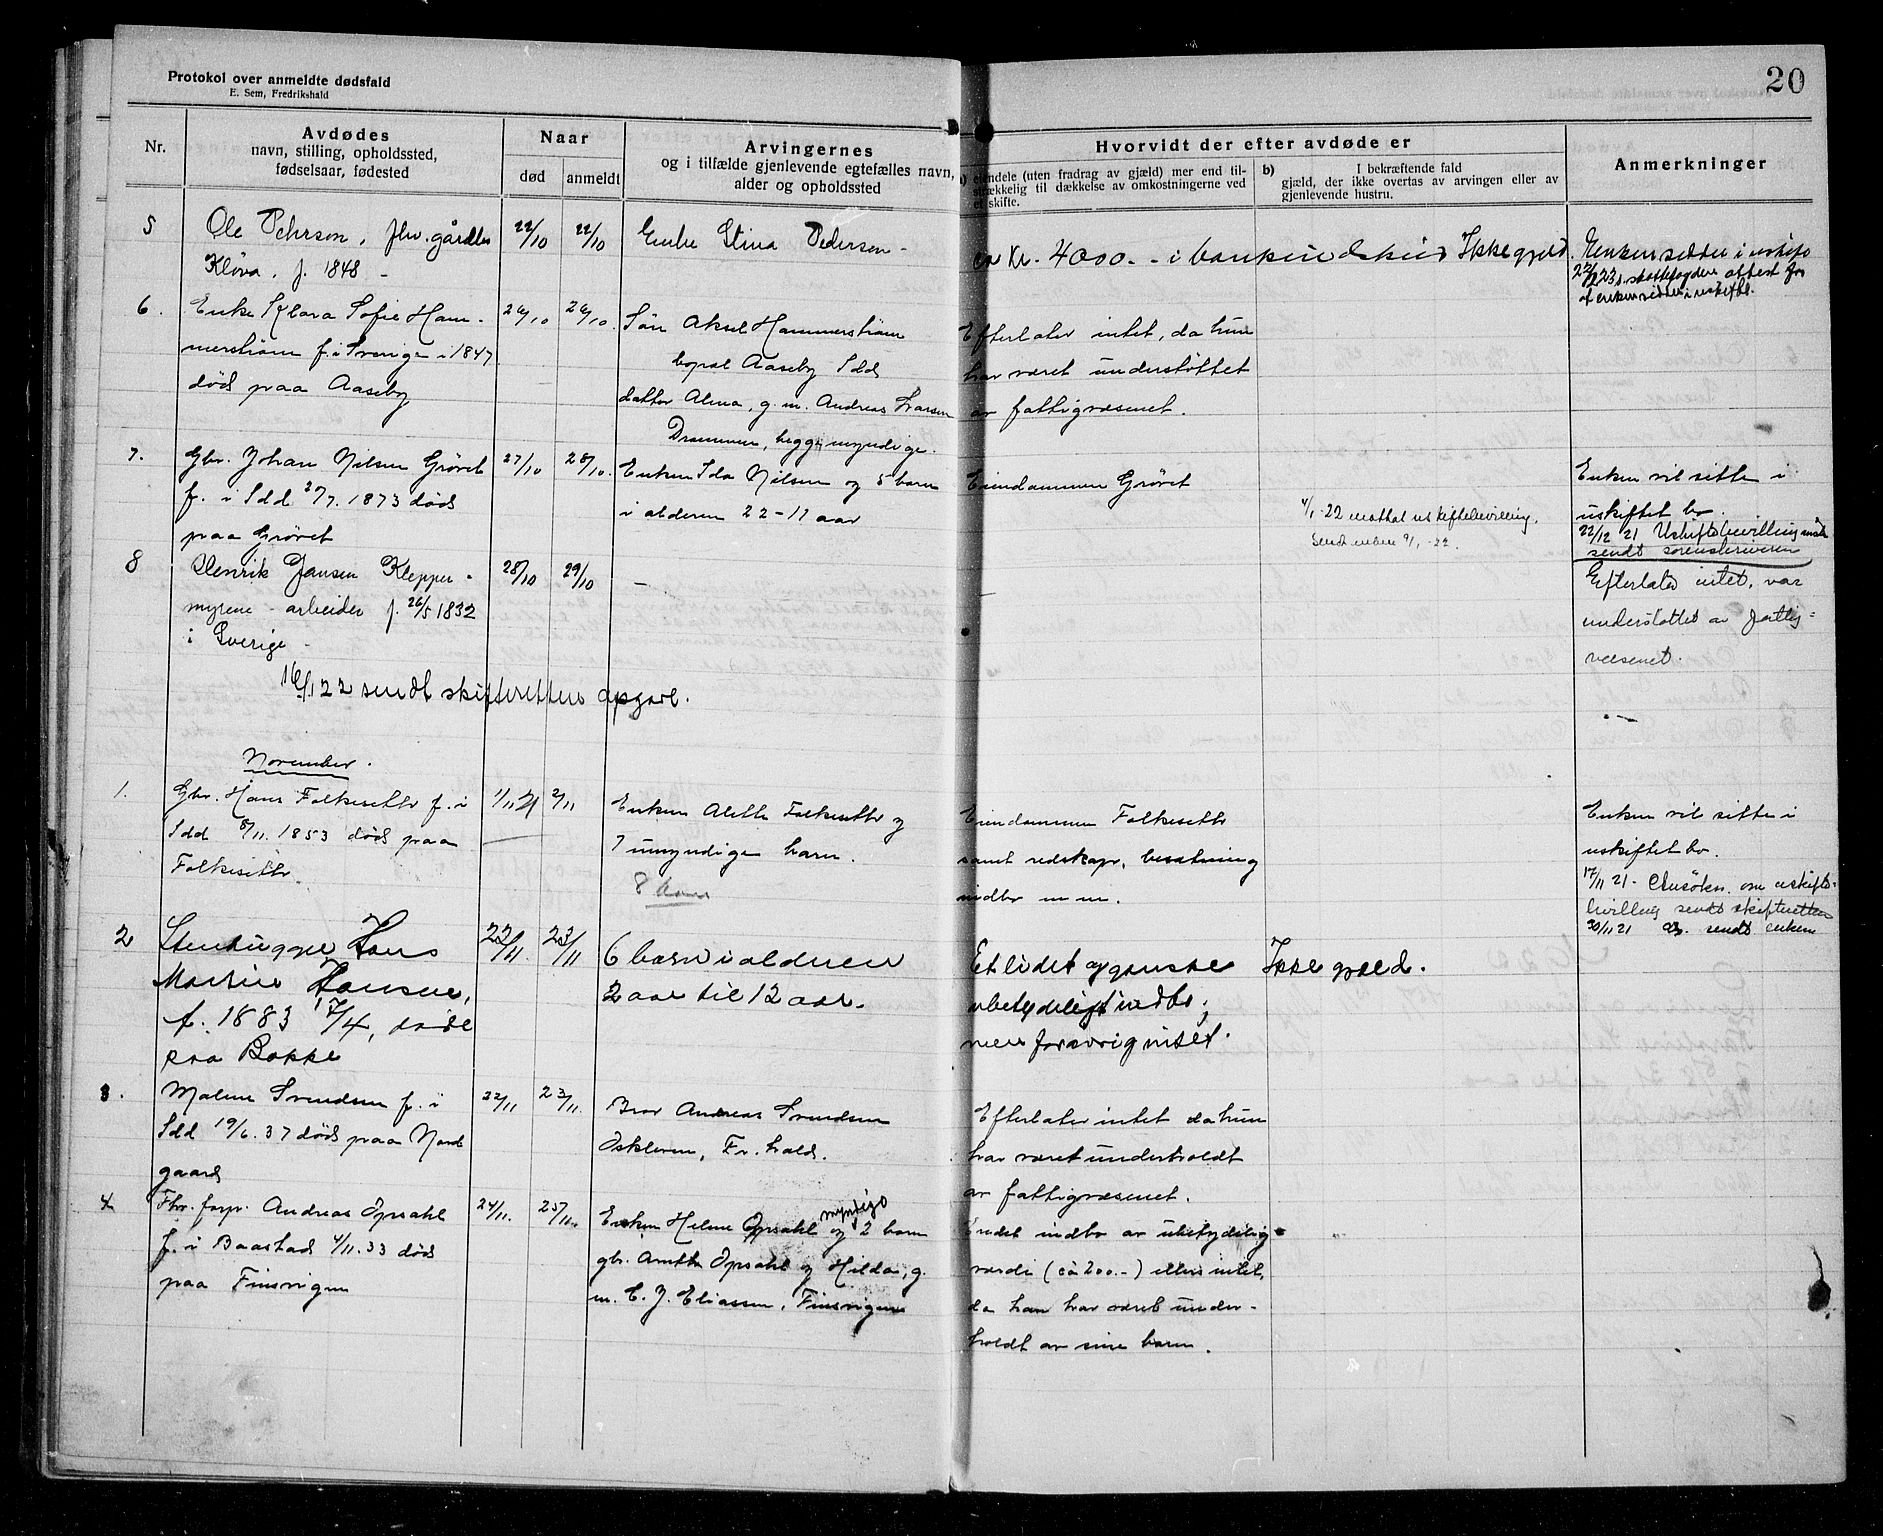 Protokol over anmeldte dødsfald
E. Sem, Fredrikshald
20
Nr.
Avdødes
navn, stilling, opholdssted,
fødselsaar, fødested
Naar
død
anmeldt
Arvingernes
og i tilfælde gjenlevende egtefælles navn,
alder og opholdssted
Hvorvidt der efter avdøde er
a) eiendele (uten fradrag av gjæld) mer end til-
strækkelig til dækkelse av omkostningerne ved
et skifte.
b) I bekræftende fald
gjæld, der ikke overtas av arvingen eller av
gjenlevende hustru.
Anmerkninger
5
Ole Pehrson, fhv. gårdbr
Kløva, f. 1848 -
22/10
22/10
Enke Stina Pederson -
ca Kr. 4000.- i bankindskud
Ikke gjeld.
Enken sitter i uskifte
6.
Enke Klara Sofie Ham-
merstrøm f. i Sverige i 1847
død paa Aaseby
26/10
26/10.
Søn Aksel Hammerstrøm
bopæl Aaseby Idd
datter Alma, g. m. Andreas Larsen
Drammen, begge myndige.
Efterlater intet, da hun
har været understøttet
av fattigvæsenet.
7.
Gbr. Johan Nilsen Grøvet
f. i Idd 27/7. 1873 død
paa Grøvet
27/10
28/10.
Enken Ida Nilsen og 5 barn
i alderen 22-11 aar
Eiendommen Grøvet
4/1-22 mottat uskiftebevilling.
Sendt enken 9/1-22.
Enken vil sitte i
uskiftet bo.
22/12 21 Uskiftebevilling
sendt sorenskriveren
8
Henrik Jansen Klepper-
myrene - arbeider f. 26/5 1832
i Sverige -
28/10
29/10
-
-
Efterlater intet, var
understøttet av fattig-
væsenet.
16/1 22 sendt skifterettens opgave.
-
November.
1.
Gbr. Hans Folkesettr f. i
Idd 8/11. 1853 død paa
Folkesettr
1/11 21
2/11
Enken Alette Folkesettr og
7 umyndige barn.
8 barn
Eiendommen Folkesettr
samt redskap, besætning
indbo m m.
Enken vil sitte i
uskiftet bo.
17/11 21 - Ansøkn. om uskifte-
bevilling sendt skifteretten
30/11 21 do. sendt enken
2
Stenhugger Hans
Martin Hansen,
f. 1883 17/4, døde
paa Bakke
22/11
23/11
6 barn i alderen
2 aar til 12 aar.
Et lidet og ganske
ubetydeligt indbo;
men forøvrig intet.
Ikke gjæld.
3.
Malene Svendsen f. i
Idd 19/6. 37 død paa Nord
gaard
22/11
23/11.
Bror Andreas Svendsen
Oskleven, Fr. hald.
Efterlater intet da hun
har været underholdt
av fattigvæsenet.
4
Fhv. forp. Andreas Opsahl
f. i Baastad 4/11. 33 død
paa Finsvigen
24/11.
25/11.
myndige
Enken Helene Opsahl og 2 barn
gbr. Anette Opsahl og Hilda, g.
m. C. J. Eliassen, Finsvigen
Endel indbo av ubetydelig
værdi (ca 200.-) ellers intet,
da han har været under-
holdt av sine barn.